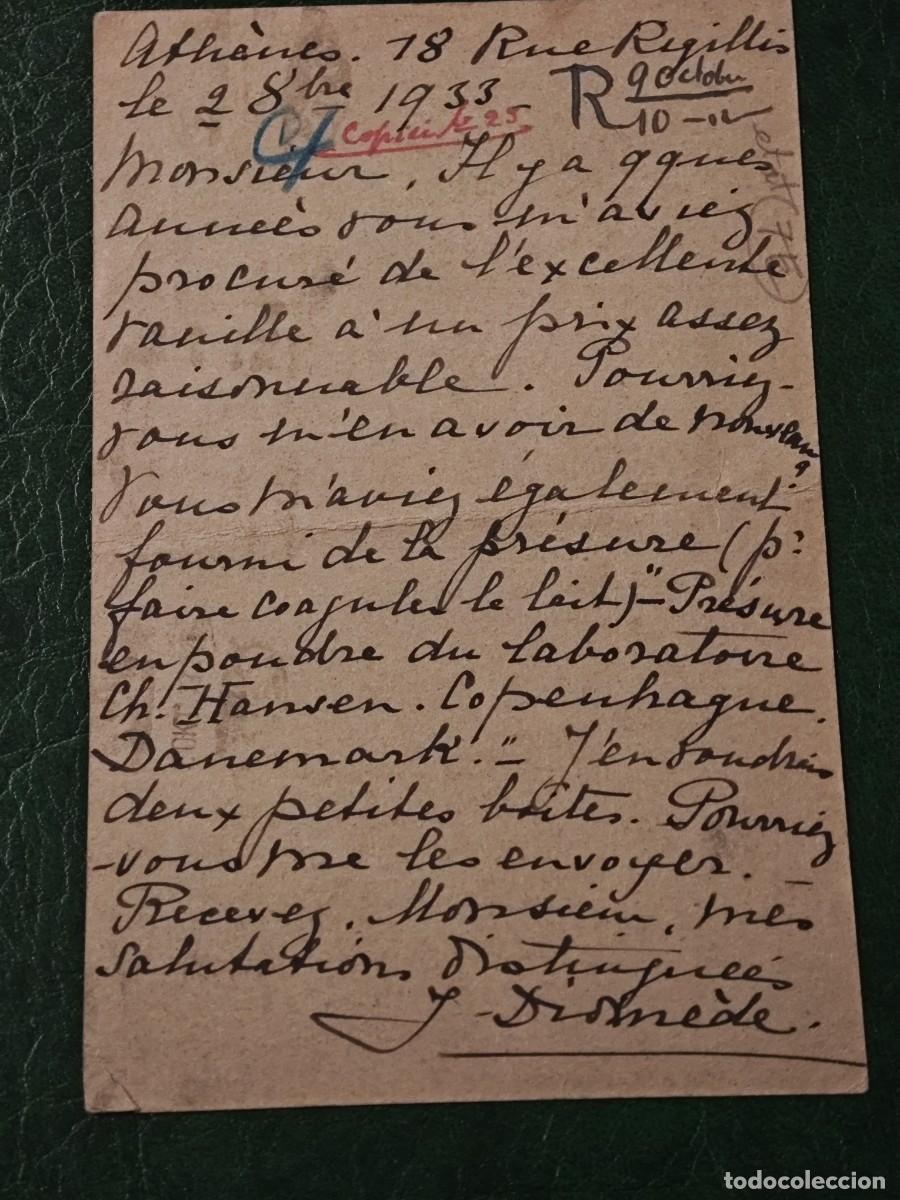 Athènes. 18 Rue Rigillis
le 2 8bre 1933
R 9 octobre
10-
Copie
25
Monsieur, Il y a qques
années vous m'aviez
procuré de l'excellente
vanille à un prix assez
raisonnable. Pourriez-
vous m'en avoir de nouveau?
Vous m'aviez également
fourni de la présure (pr
faire coaguler le lait) "-Présure
en poudre du laboratoire
Ch. Hansen. Copenhague.
Danemark."- J'en voudrais
deux petites boîtes. Pourriez
-vous me les envoyer. -
Recevez, Monsieur, mes
salutations distinguées
J. Diomède.
todocoleccion